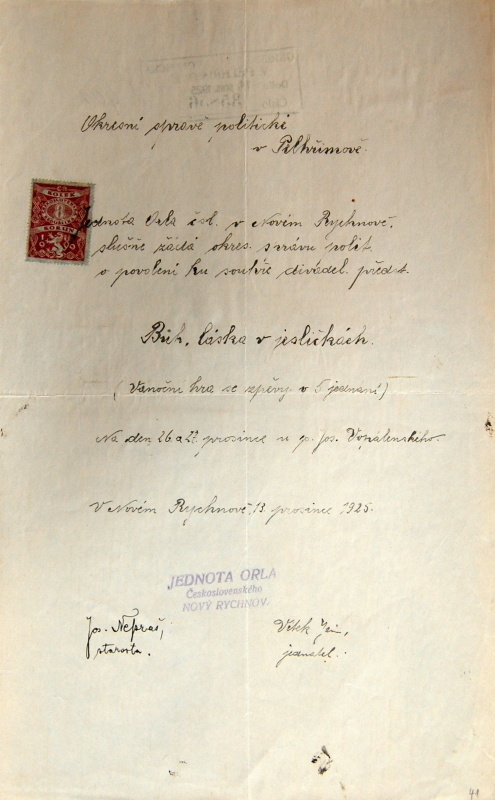 Okresní správě politické
v Pelhřimově.
KOLEK
8
KORUN
1919
Jednota Orla čsl. v Novém Rychnově,
slušně žádá okres. správu polit.
o povolení ku souhře divadel. předst.
Bůh, láska v jesličkách.
(Vánoční hra se zpěvy v 5 jednání)
Na den 26. a 27. prosince u p. Jos. Vopálenského.
V Novém Rychnově, 13 prosince 1925.
JEDNOTA ORLA
Československého
NOVÝ RYCHNOV.
Jos. Nepraš,
starosta.
jednatel.
41